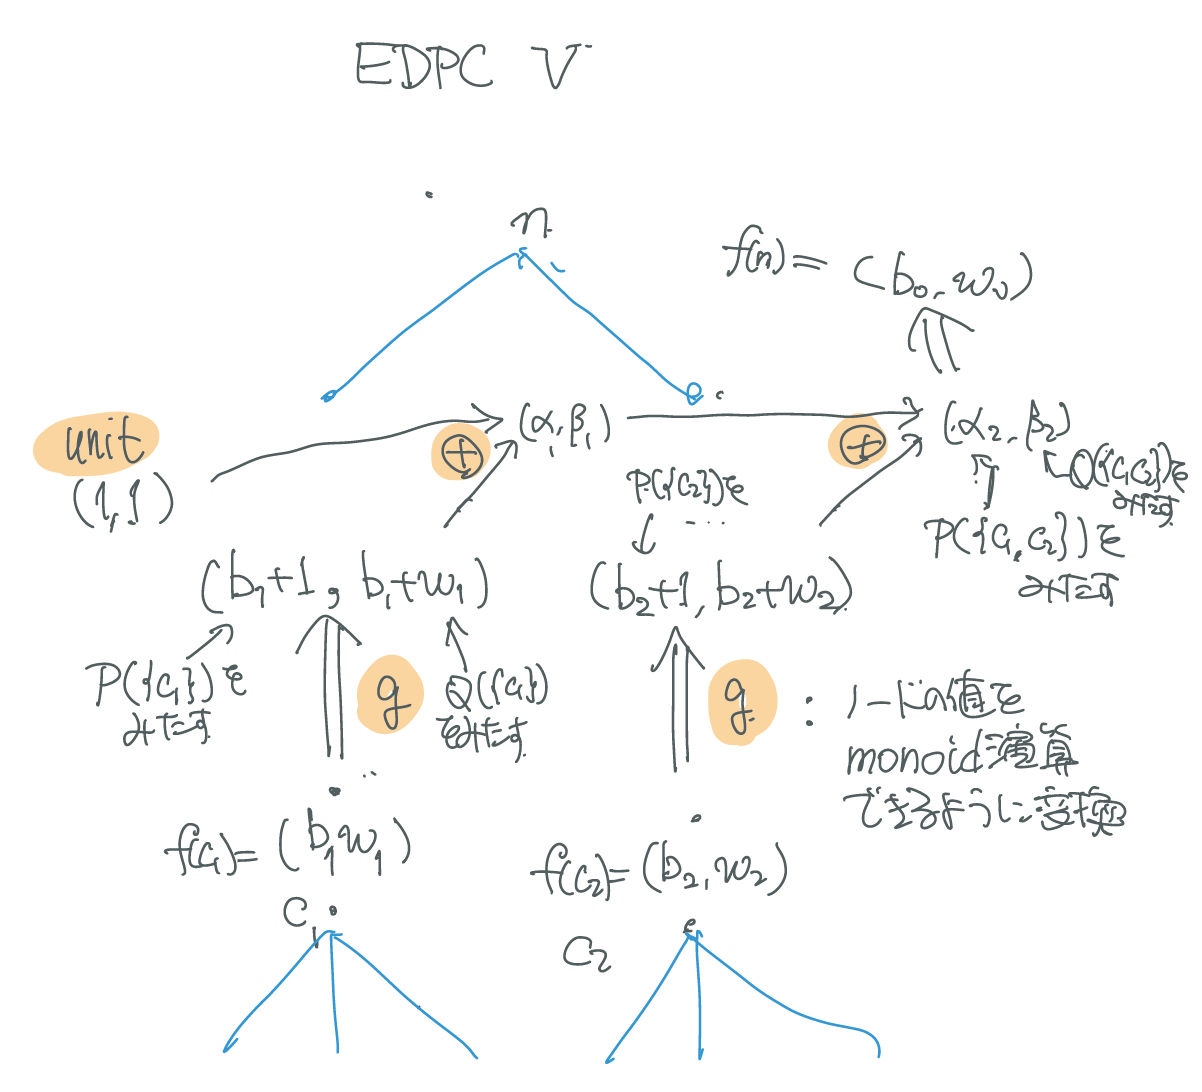 EDPC V
n
f(n) = (b₀, w₀)
unit
(1, 1)
⊕
(α₁, β₁)
⊕
(α₂, β₂)
P({c₂})を
...
Q({c₁c₂})を
みたす
P({c₁, c₂})を
みたす
(b₁+1, b₁+w₁)
(b₂+1, b₂+w₂)
P({c₁})を
みたす
g
Q({c₁})
をみたす
g
: ノードの値を
monoid演算
できるように変換
f(c₁) = (b₁ w₁)
f(c₂) = (b₂, w₂)
c₁
c₂